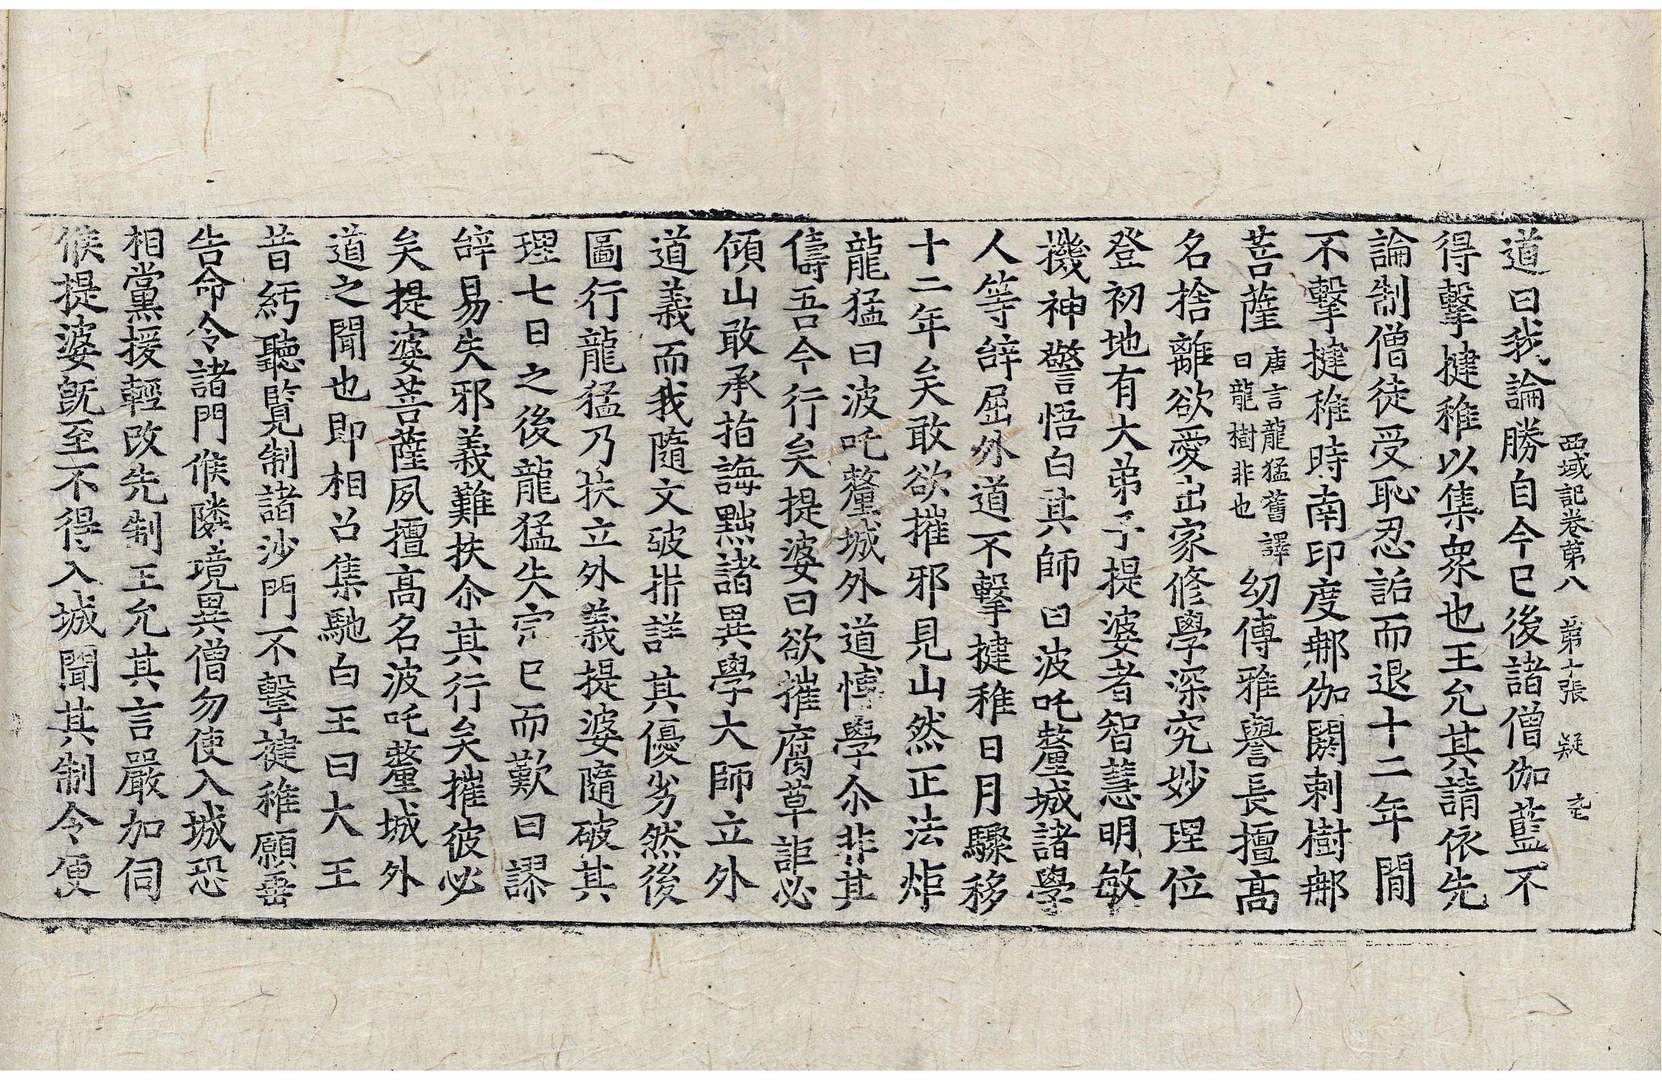 西域記卷第八 第十張 疑
道曰我論勝自今已後諸僧伽藍不
得擊揵稚以集衆也王允其請依先
論制僧徒受恥忍詬而退十二年間
不擊揵稚時南印度郍伽閼剌樹郍
菩薩唐言龍猛舊譯曰龍樹非也幼傳雅譽長擅高
名捨離欲愛出家修學深究妙理位
登初地有大弟子提婆者智慧明敏
機神警悟白其師曰波吒釐城諸學
人等辝屈外道不擊揵稚日月驟移
十二年矣敢欲摧邪見山然正法炬
龍猛曰波吒釐城外道博學尒非其
儔吾今行矣提婆曰欲摧腐草詎必
傾山敢承指誨黜諸異學大師立外
道義而我隨文破析詳其優劣然後
圖行龍猛乃扶立外義提婆隨破其
理七日之後龍猛失宗已而歎曰謬
辝易失邪義難扶尒其行矣摧彼必
矣提婆菩薩夙擅高名波吒釐城外
道之聞也即相召集馳白王曰大王
昔紆聽覽制諸沙門不擊揵稚願垂
告命令諸門候隣境異僧勿使入城恐
相黨援輕改先制王允其言嚴加伺
候提婆旣至不得入城聞其制令便